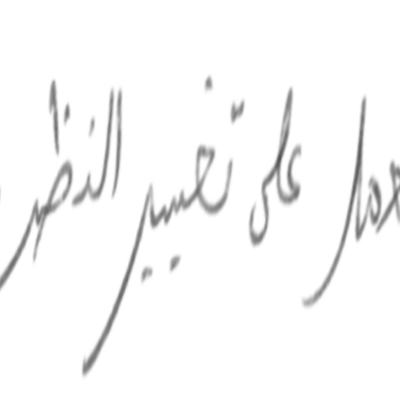 عمل على تغيير النظر